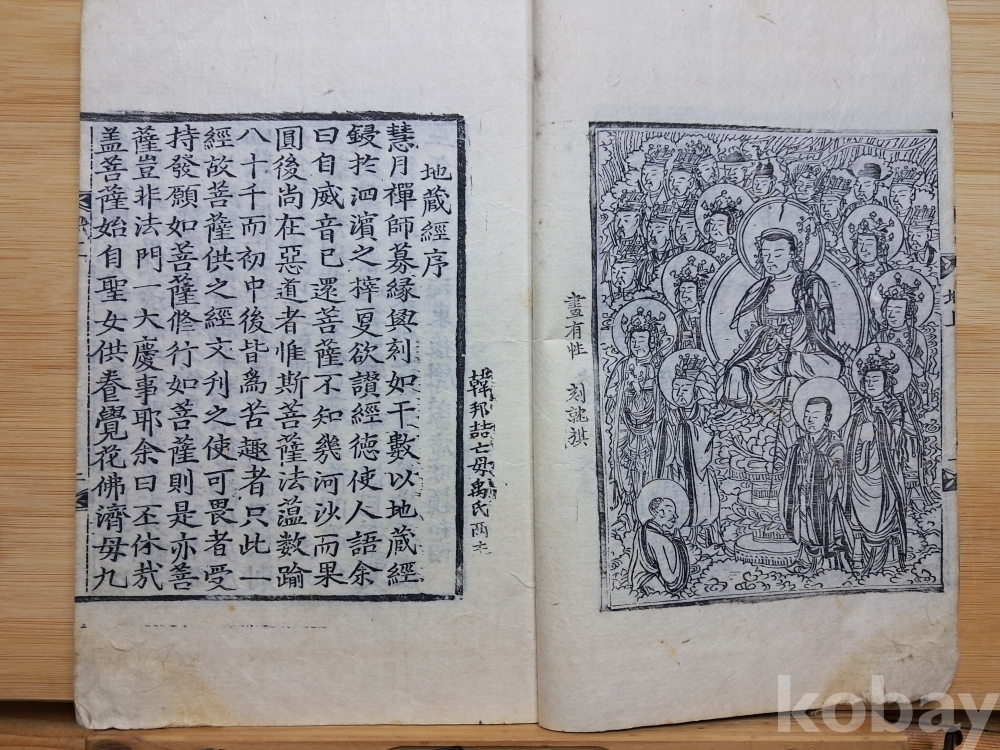 地上
畫有性 刻詑祺
韓邦喆亡母禹氏丙
地蔵經序
慧月禪師募緣興刻如干數以地蔵經
鋟扵泗濵之擇夏欲讃經德使人語余
曰自威音已還菩薩不知幾河沙而果
圓後尚在惡道者惟斯菩薩法薀數踰
八十千而初中後皆爲苦趣者只此一
經故菩薩供之經文利之使可畏者受
持發願如菩薩修行如菩薩則是亦菩
薩豈非法門一大慶事耶余曰丕休哉
盖菩薩始自聖女供養覺花佛濟母九
kobay